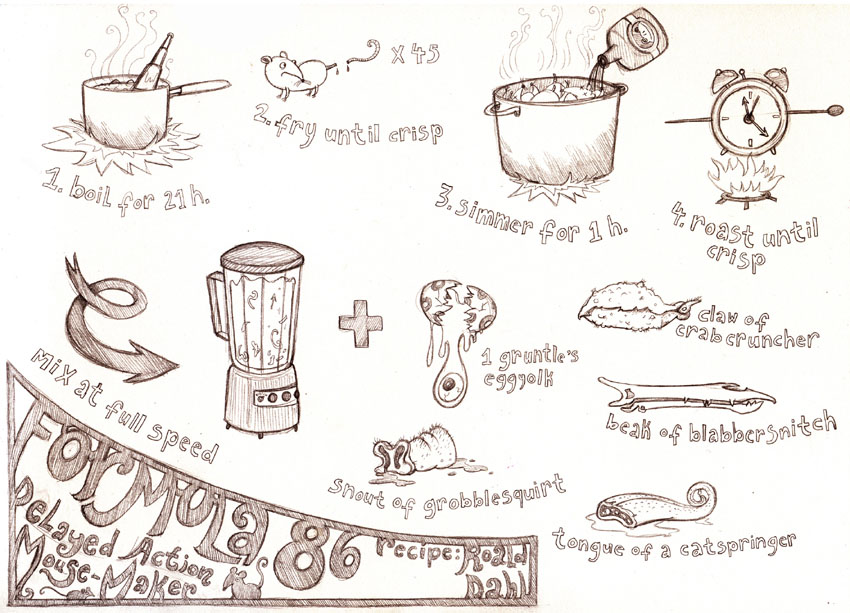 x 45
1. boil for 21 h.
2. fry until crisp
3. simmer for 1 h.
4. roast until
crisp
Mix at full speed
1 gruntle's
eggyolk
claw of
crabcruncher
beak of blabbersnitch
snout of grobblesquirt
tongue of a catspringer
Formula 86
Delayed Action
Mouse-Maker
recipe: Roald
Dahl